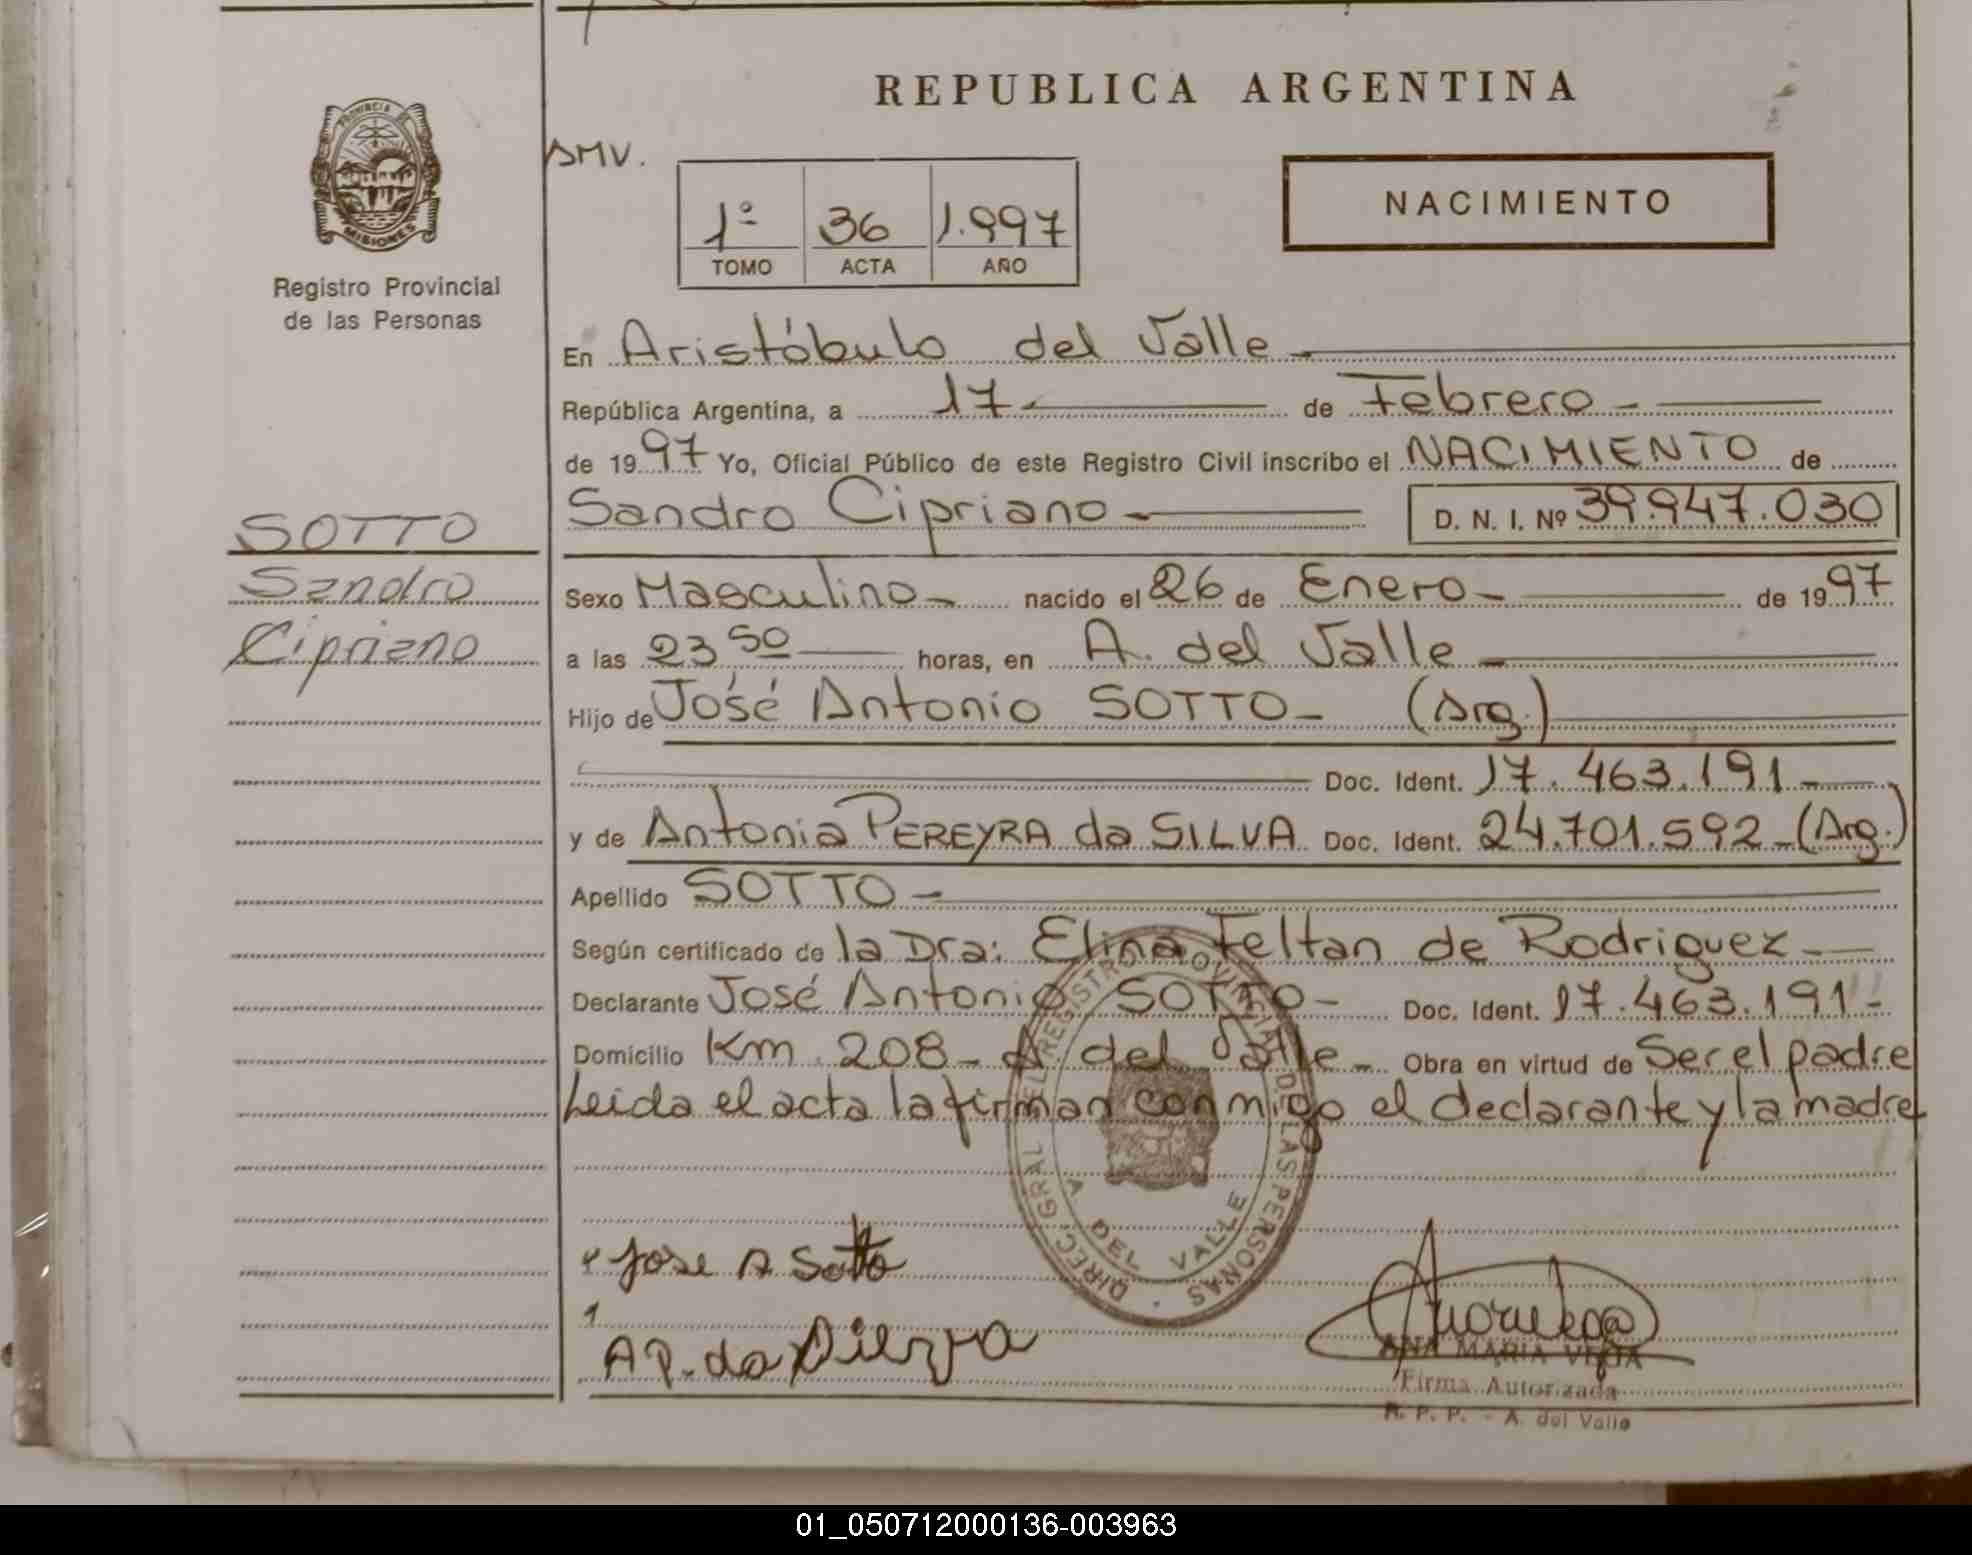 REPUBLICA ARGENTINA
PROVINCIA DE
MISIONES
Registro Provincial
de las Personas
AMV.
1º 36 1.997
TOMO ACTA AÑO
NACIMIENTO
En Aristóbulo del Valle
República Argentina, a 17 de Febrero
de 1997 Yo, Oficial Público de este Registro Civil inscribo el NACIMIENTO de
Sandro Cipriano D. N. I. Nº 39.947.030
SOTTO
Sandro
Cipriano
Sexo Masculino nacido el 26 de Enero de 1997
a las 23 50 horas, en A. del Valle
Hijo de José Antonio SOTTO (Arg.)
Doc. Ident. 17.463.191
y de Antonia PEREYRA da SILVA Doc. Ident. 24.701.592 (Arg.)
Apellido SOTTO
Según certificado de la Dra: Elina Feltan de Rodriguez
Declarante José Antonio SOTTO Doc. Ident. 17.463.191
Domicilio Km. 208 - A del Valle Obra en virtud de Ser el padre
Leida el acta la firman conmigo el declarante y la madre
DIREC. GRAL. DEL REGISTRO PROVINCIAL DE LAS PERSONAS
A DEL VALLE
Jose A Sotto
A P. da Silva
ANA MARIA VEGA
Firma Autorizada
R. P. P. - A. del Valle
01_050712000136-003963